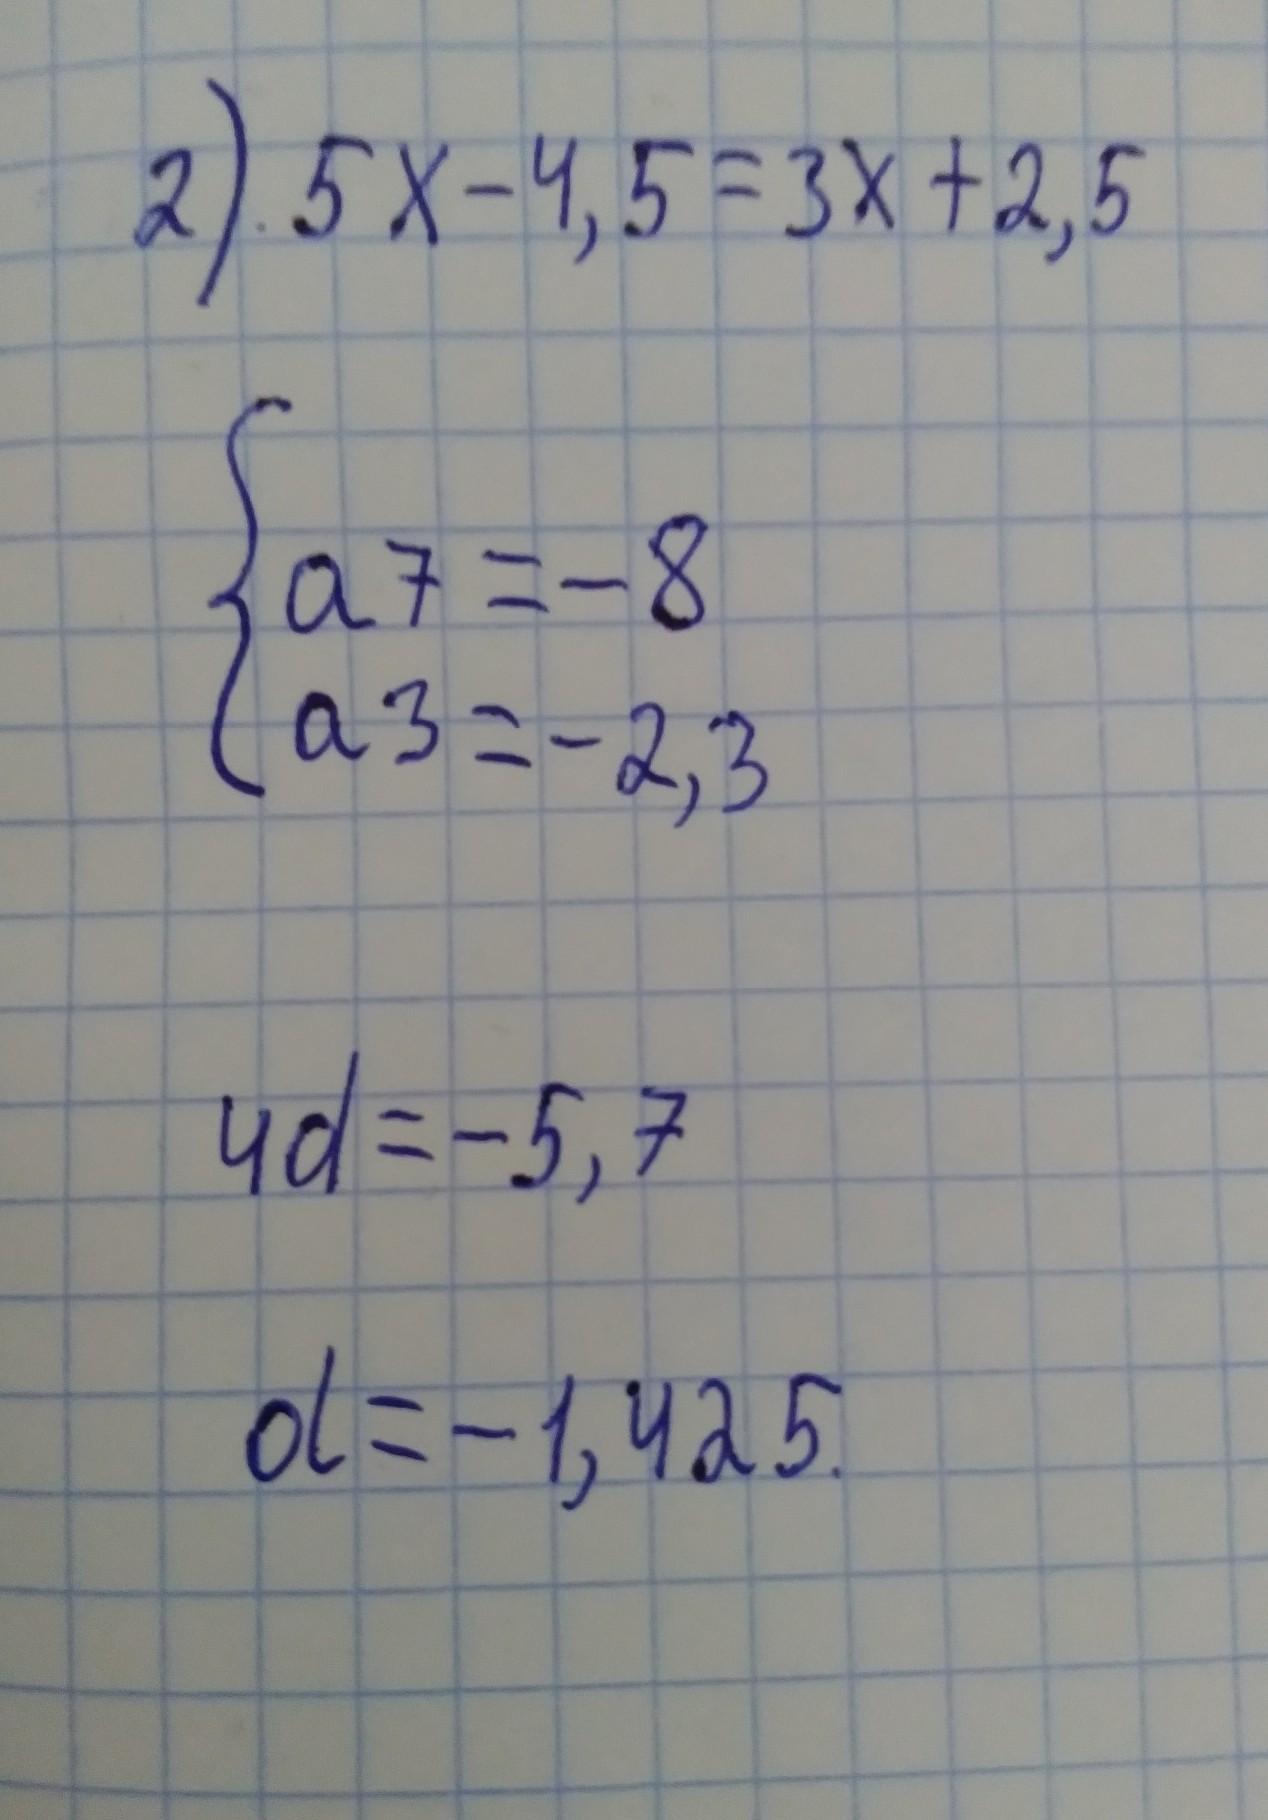 2). 5x-4,5=3x+2,5
a7=-8
a3=-2,3
4d=-5,7
d=-1,425.